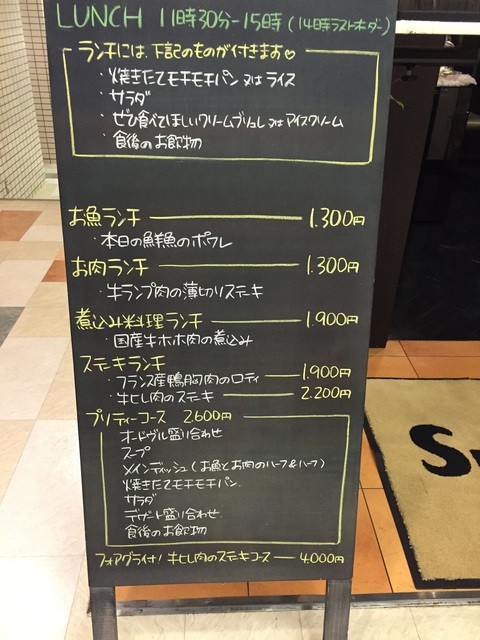 LUNCH 11時30分-15時(14時ラストオーダー)
ランチには、下記のものが付きます♡
・焼きたてモチモチパン 又は ライス
・サラダ
・ぜひ食べてほしいクリームブリュレ 又は アイスクリーム
・食後のお飲物
お魚ランチ 1.300円
・本日の鮮魚のポワレ
お肉ランチ 1.300円
・牛ランプ肉の薄切りステキ
煮込み料理ランチ 1.900円
・国産牛ホホ肉の煮込み
ステーキランチ
・フランス産鴨胸肉のロティ 1.900円
・牛ヒレ肉のステーキ 2.200円
プリティーコース 2.600円
オードヴル盛り合わせ
スープ
メインディッシュ(お魚とお肉のハーフ&ハーフ)
焼きたてモチモチパン
サラダ
デザート盛り合わせ
食後のお飲物
フォアグラ付!牛ヒレ肉のステーキコース 4.000円